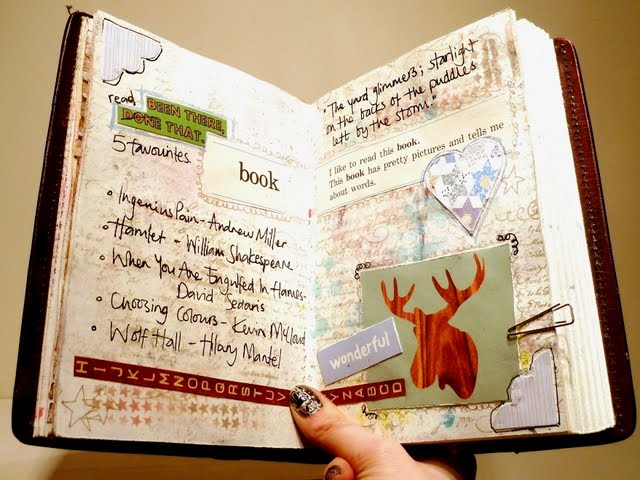 read,
BEEN THERE,
DONE THAT.
5 favourites.
book
• Ingenius Pain - Andrew Miller
• Hamlet - William Shakespeare
• When You Are Engulfed In Flames -
David Sedaris
• Choosing Colours - Kevin McCloud
• Wolf Hall - Hilary Mantel
HIJKLMNOPQRSTUV YZABCD
"The yard glimmers; starlight
on the backs of the puddles
left by the storm."
I like to read this book.
This book has pretty pictures and tells me
about words.
wonderful